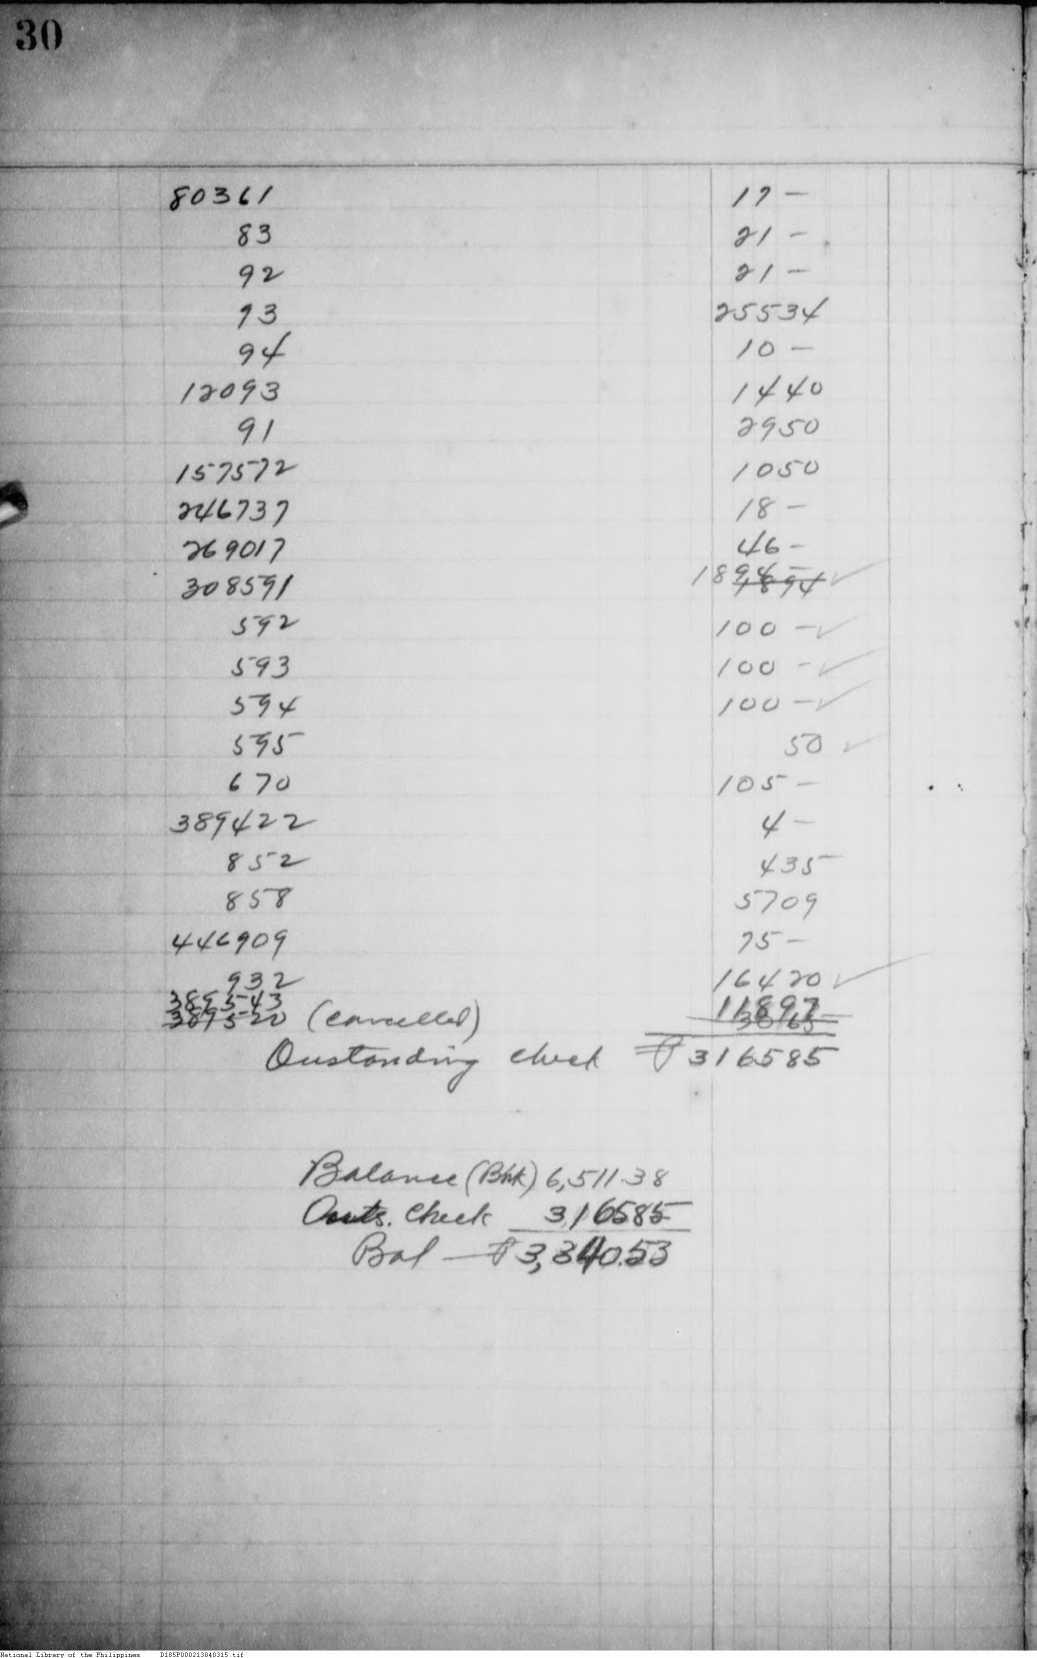 30
80361 17 —
83 21 —
92 21 —
93 25534
94 10 —
12093 1440
91 2950
157572 1050
246737 18 —
269017 46 —
308591 1894 — 1894
592 100 —
593 100 —
594 100 —
595 50
670 105 —
389422 4 —
852 435
858 5709
446909 75 —
932 16420
389543 11897
389520 (cancelled)
Oustanding check ₱ 316585
Balance (Bnk) 6,511.38
Outs. Check 316585
Bal — ₱ 3,340.53
National Library of the Philippines D185P000213040315.tif